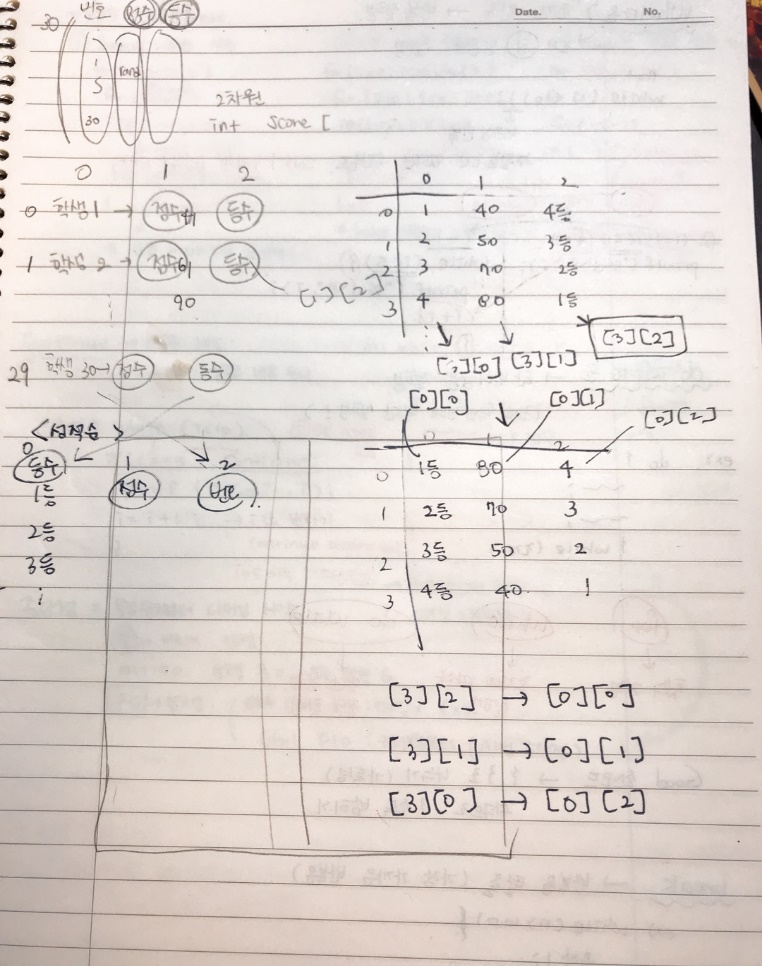 Date. No.
30 번호 점수 등수
1 rand
S
30
2차원
int score [
0 1 2
0 학생1 → 점수 등수
1 학생 2 → 점수 등수
90
[1][2]
29 학생 30→ 점수 등수
0 1 2
0 1 40 4등
1 2 50 3등
2 3 70 2등
3 4 80 1등
[3][0] [3][1] [3][2]
<성적순>
0 1 2
등수 점수 번호
1등
2등
3등
[0][0] [0][1] [0][2]
0 1 2
0 1등 80 4
1 2등 70 3
2 3등 50 2
3 4등 40 1
[3][2] → [0][0]
[3][1] → [0][1]
[3][0] → [0][2]